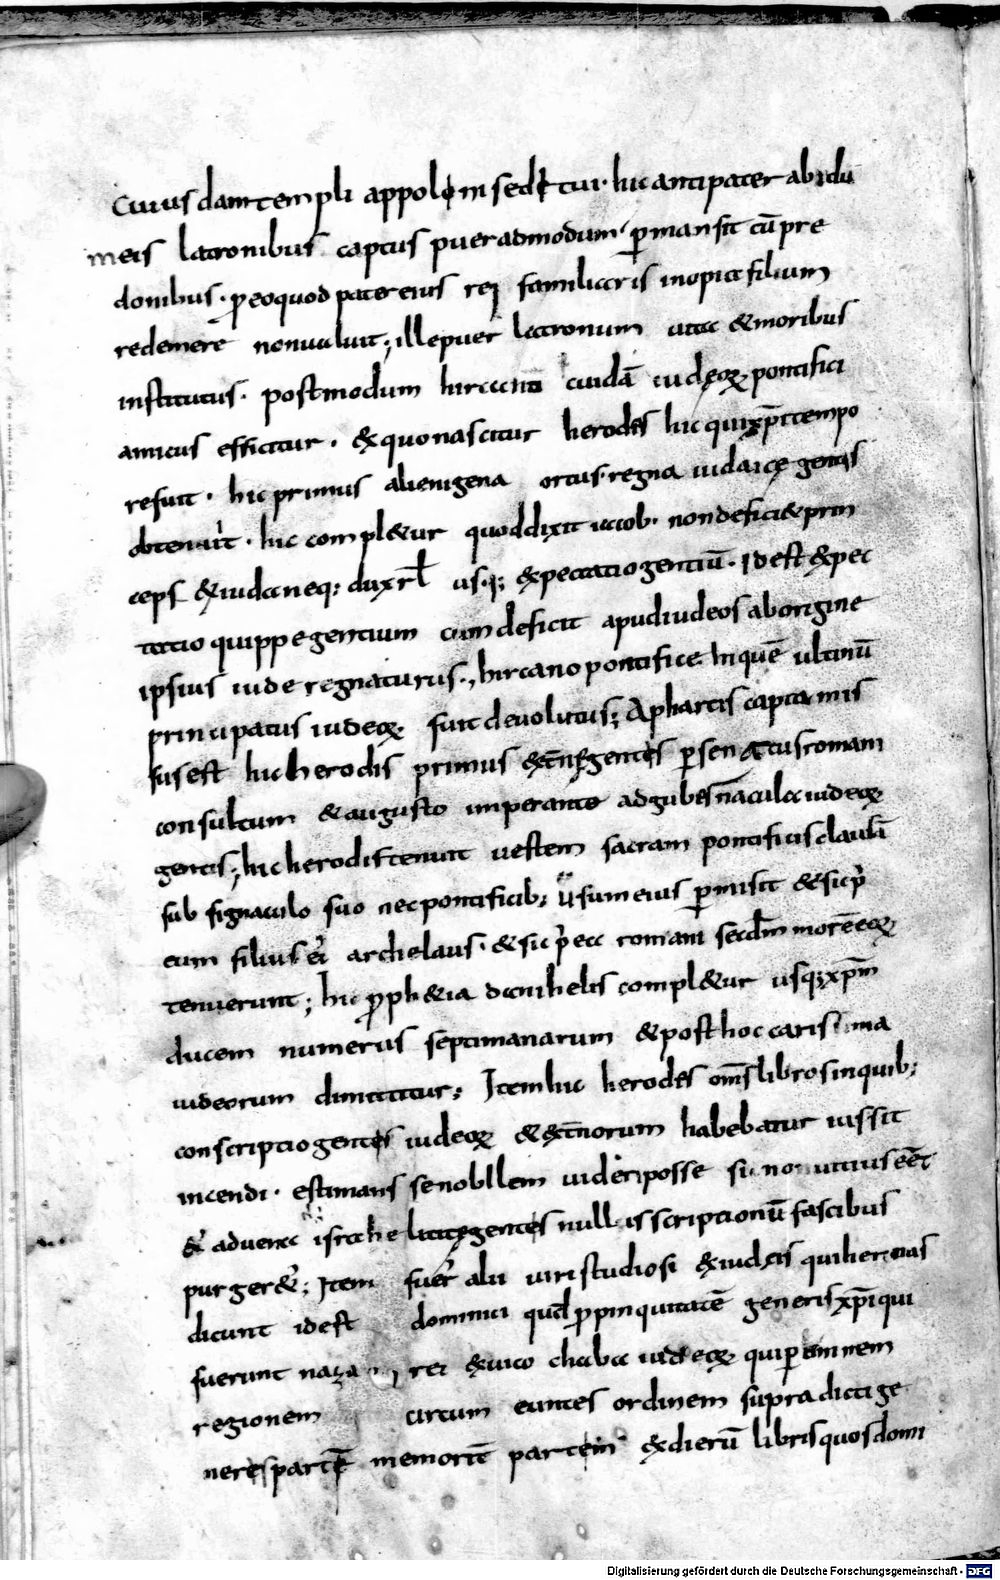 cuiusdam templi appolonis edetui · hic antipater ab idu
meis latronibus captus puer admodum p̄mansit cū pre
donibus · p eo quod pater eius rei familiaris inopia filium
redemere non ualuit ; ille puer latronum uita & moribus
institutus · postmodum hircano cuidā iudęoꝝ pontifici
amicus efficitur · ex quo nascitur herodes hic qui xp̄i tempo
re fuit · hic primus alienigena ortus · regna iudaicę gentis
obtenuit · hic compl&ur quod dixit iacob · non defici& prin
ceps ex iuda neq; dux isrl usq; expectatio gentiū · Idest expec
tatio quippe gentium cum deficit apud iudeos ab origine
ipsius iude regnaturus · , hircano pontifice In quē ultimū
principatus iudeoꝝ fuit deuolutus ; A phartis capta mis
sus est hic herodis primus ext̄n gentes p senatus romani
consultum & augusto imperante ad gub̄nacula iudeoꝝ
gentis ; hic herodis tenuit uestem sacram pontificis clausā
sub signaculo suo nec pontificib; usum eius p̄misit & sic p̄
eum filius ei archelaus · & sic p̄ ea romani secd̄m morē eoꝝ
tenuerunt ; hic p̄ph&ia danihelis compl&ur usq; xp̄m
ducem numerus septimanarum & post hoc carisma
iudeorum dimittitur ; Item hic herodes om̄s libros in quib;
conscriptio gentis iudeoꝝ & ext̄norum habebatur iussit
incendi · estimans se nobilem uideri posse si non ueē̄t
& aduena israhelitice gentes nullis scriptionū fascibus
purger& ; Item fuer̄ alii uiri studiosi ex iudeis qui
dicunt idest dominici qud p̄pinquitatē generis xp̄i qui
fuerunt rei & uico chaba iudeoꝝ qui p omnem
regionem circum euntes ordinem supra dicti ge
neris partē memorit̄ partem ex dierū libris quos domi
Digitalisierung gefördert durch die Deutsche Forschungsgemeinschaft - DFG